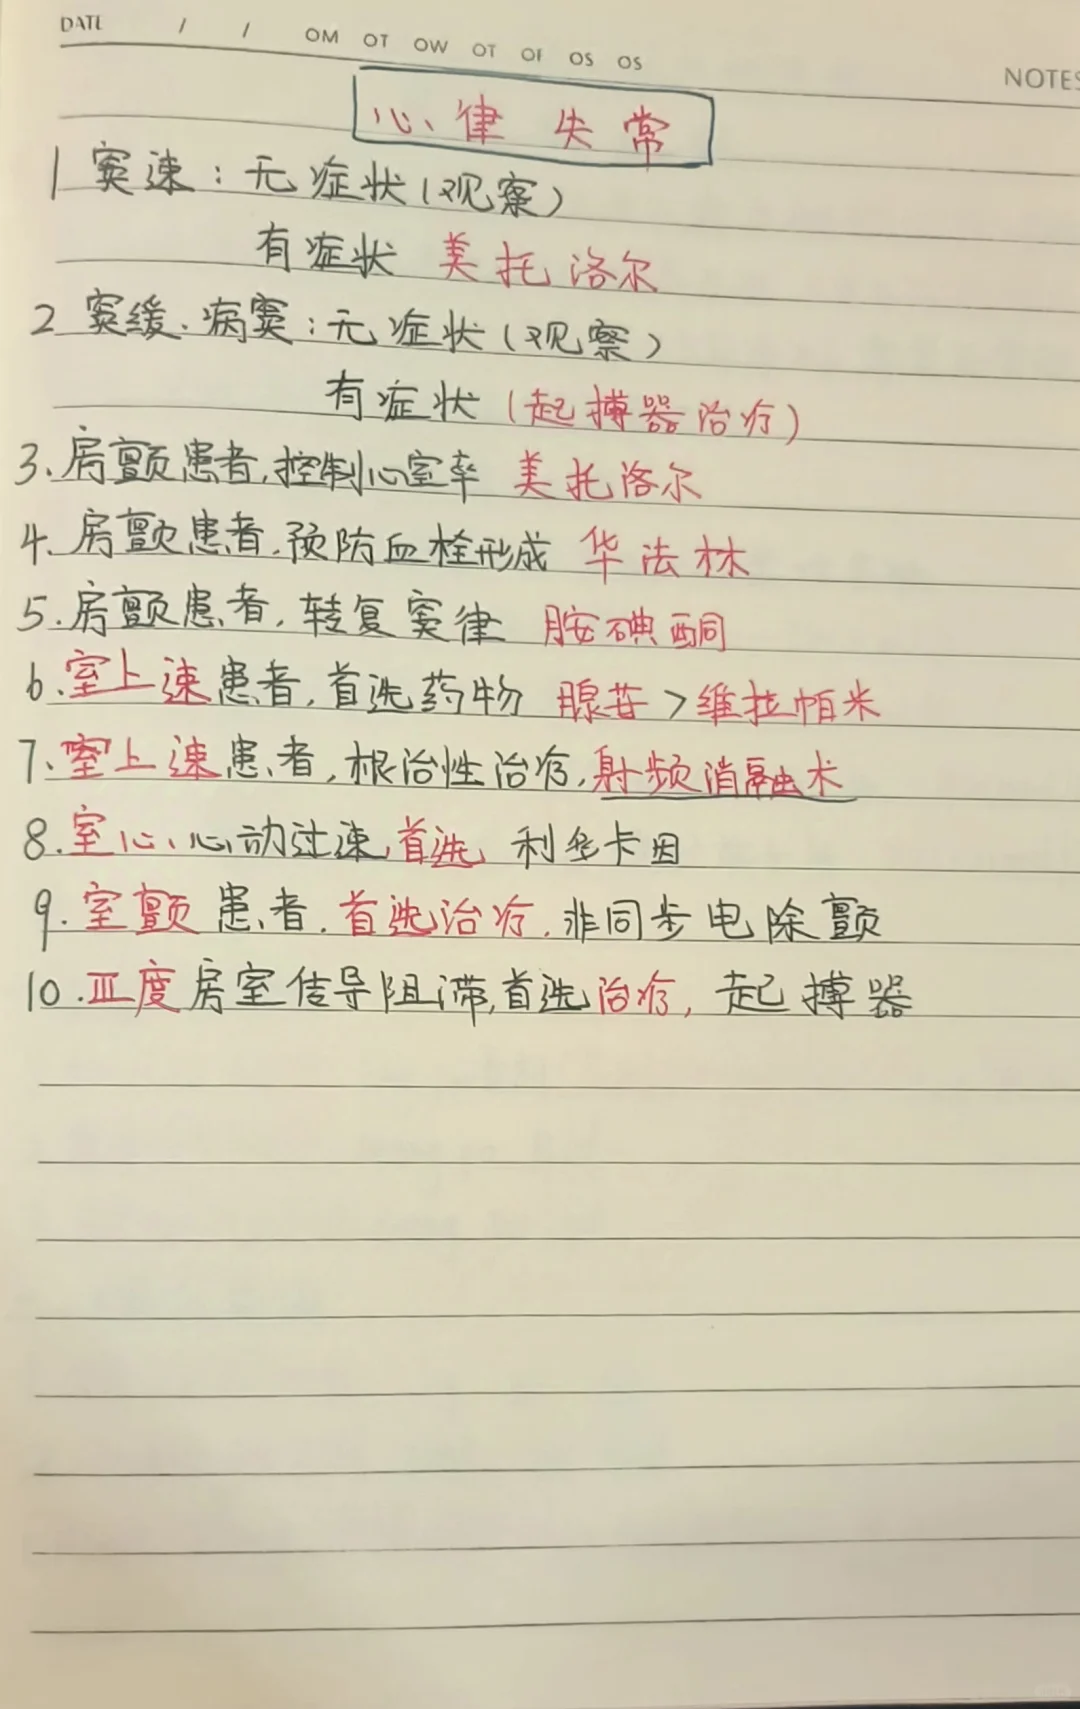 DATE / / OM OT OW OT OF OS OS
NOTES
心律失常
1 窦速：无症状(观察)
有症状 美托洛尔
2 窦缓、病窦：无症状(观察)
有症状(起搏器治疗)
3.房颤患者,控制心室率 美托洛尔
4.房颤患者.预防血栓形成 华法林
5.房颤患者,转复窦律 胺碘酮
6.室上速患者,首选药物 腺苷>维拉帕米
7.室上速患者,根治性治疗,射频消融术
8.室心、心动过速首选 利多卡因
9.室颤患者.首选治疗.非同步电除颤
10.Ⅲ度房室传导阻滞,首选治疗,起搏器